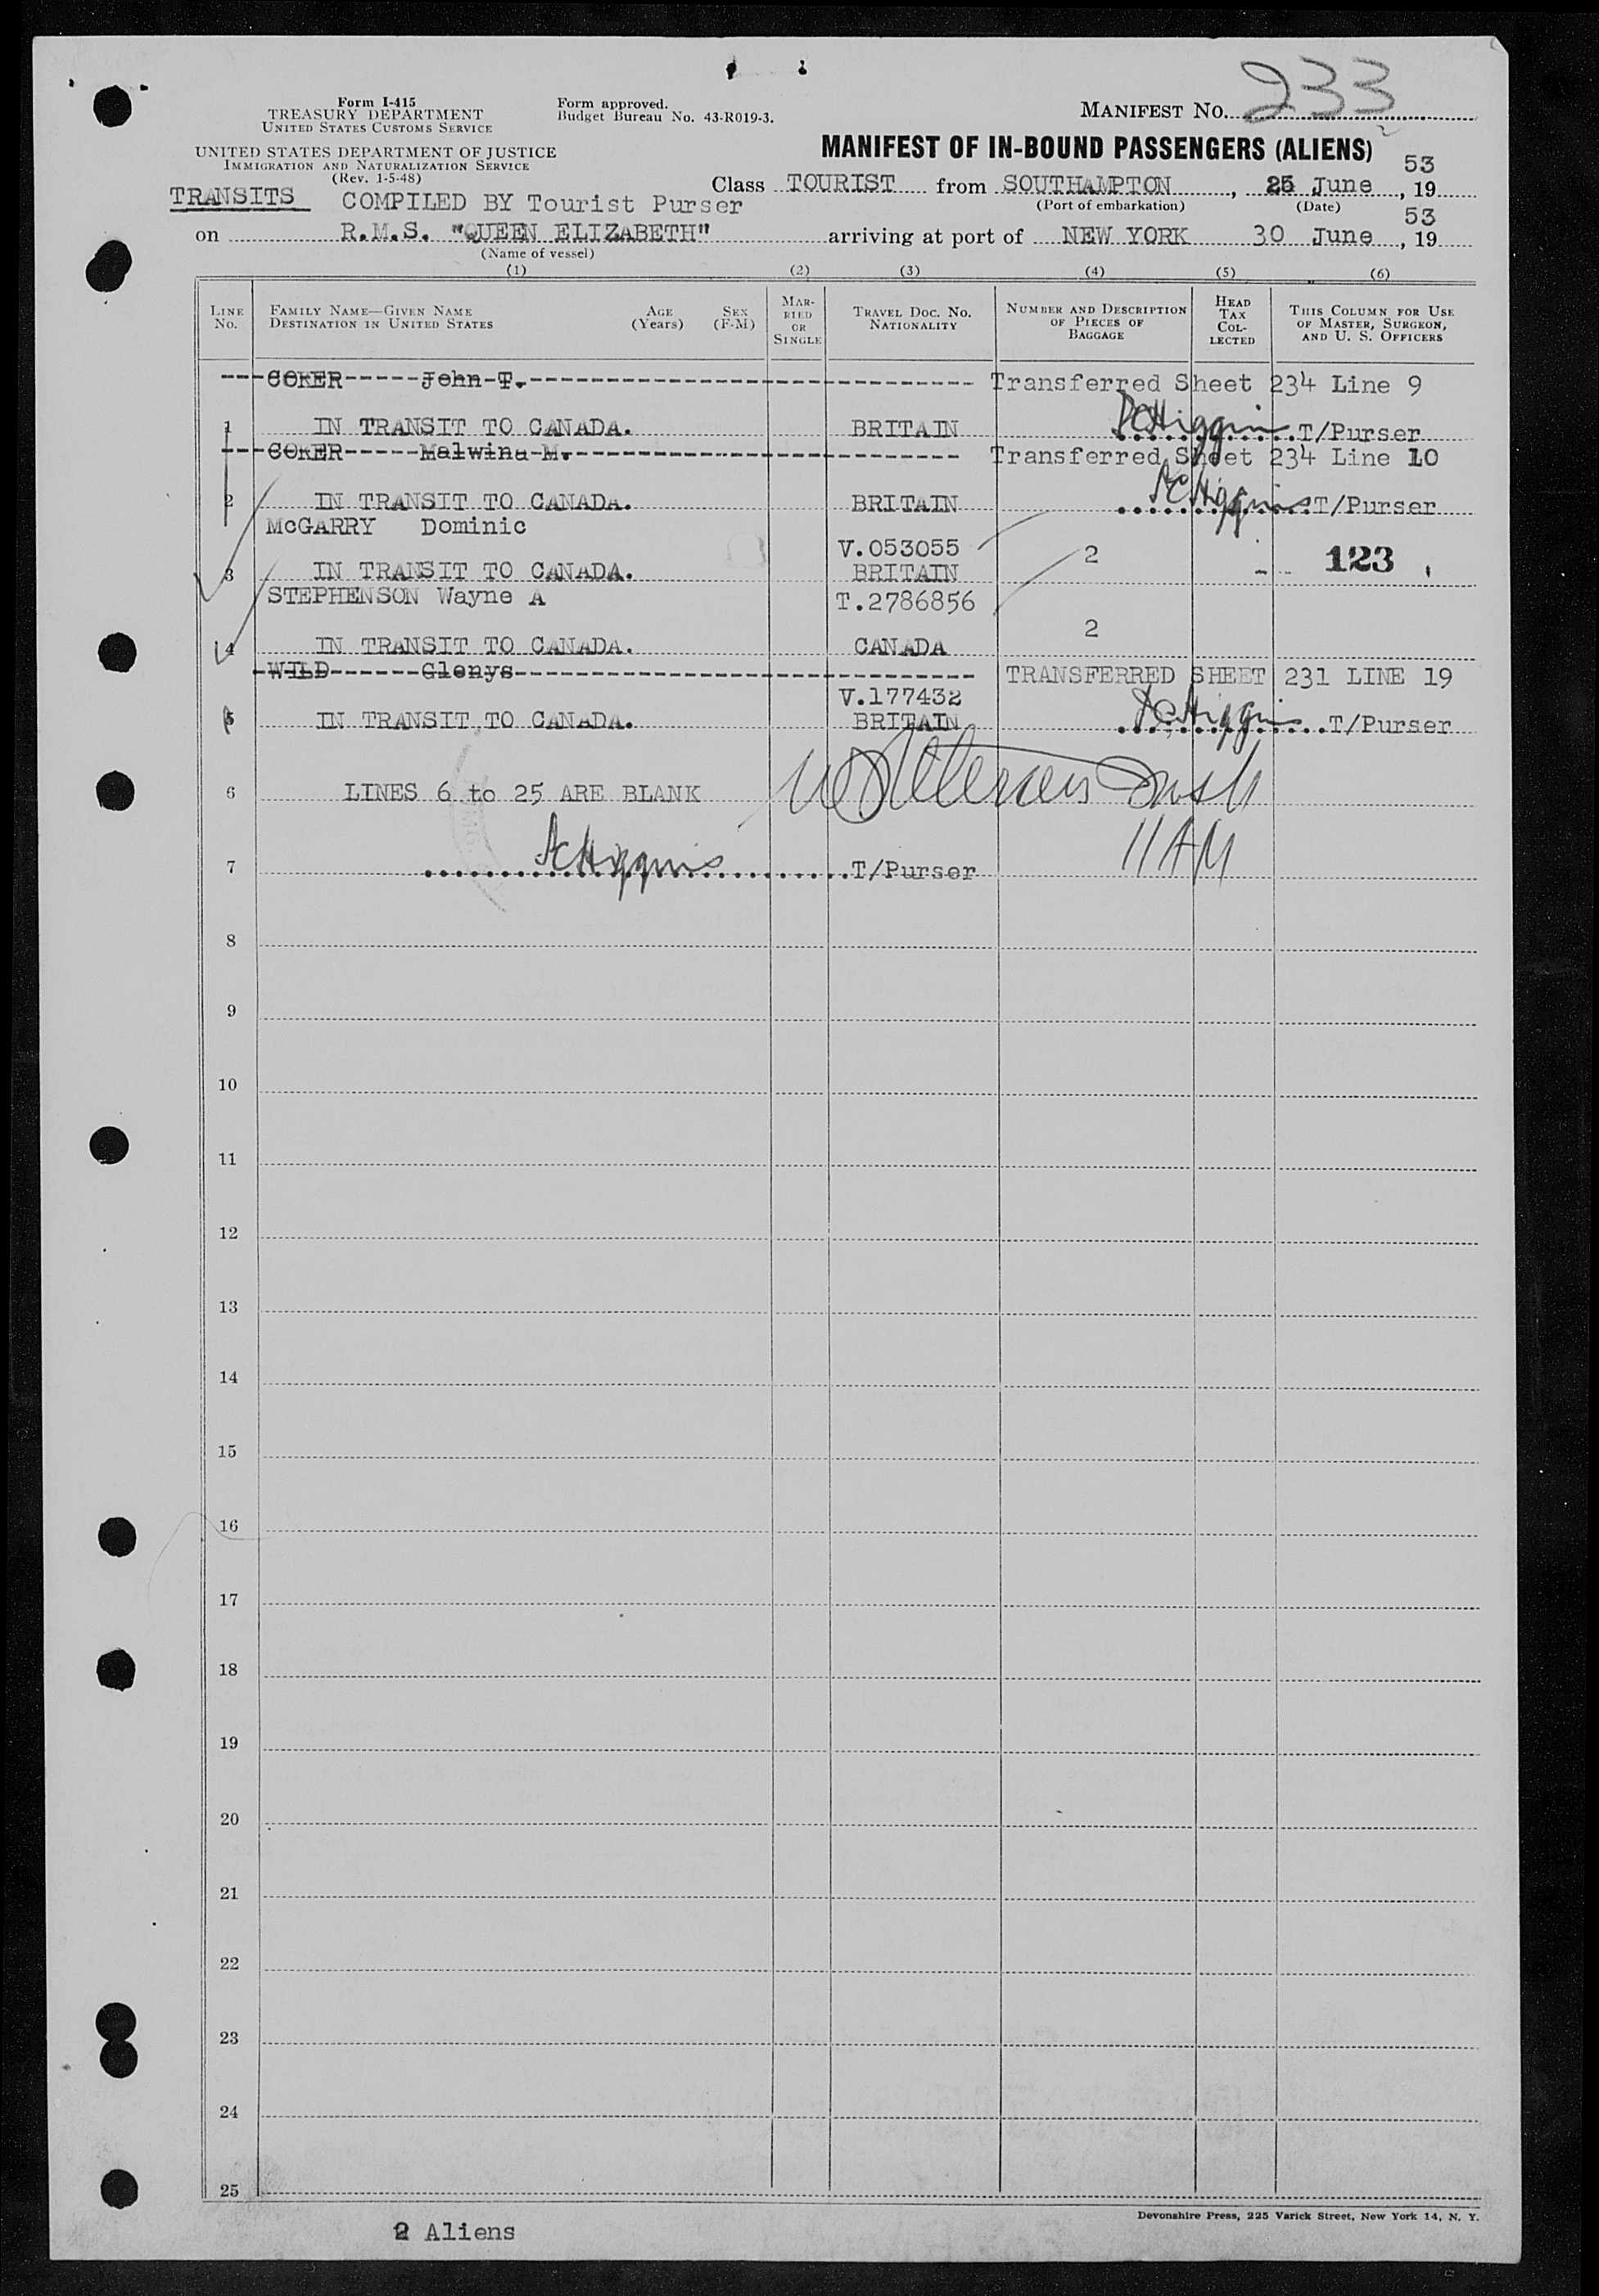 233
Form I-415
TREASURY DEPARTMENT
UNITED STATES CUSTOMS SERVICE
Form approved.
Budget Bureau No. 43-R019-3.
MANIFEST NO.
UNITED STATES DEPARTMENT OF JUSTICE
IMMIGRATION AND NATURALIZATION SERVICE
(Rev. 1-5-48)
MANIFEST OF IN-BOUND PASSENGERS (ALIENS)
TRANSITS COMPILED BY Tourist Purser
Class TOURIST from SOUTHAMPTON, 25 June, 1953
(Port of embarkation) (Date)
on R.M.S. "QUEEN ELIZABETH" arriving at port of NEW YORK 30 June, 1953
(Name of vessel)
(1) (2) (3) (4) (5) (6)
LINE NO.
FAMILY NAME—GIVEN NAME
DESTINATION IN UNITED STATES
AGE (Years)
SEX (F-M)
MARRIED OR SINGLE
TRAVEL DOC. NO. NATIONALITY
NUMBER AND DESCRIPTION OF PIECES OF BAGGAGE
HEAD TAX COLLECTED
THIS COLUMN FOR USE OF MASTER, SURGEON, AND U. S. OFFICERS
COKER John T. Transferred Sheet 234 Line 9
1 IN TRANSIT TO CANADA. BRITAIN T/Purser
COKER Malwina M. Transferred Sheet 234 Line 10
2 IN TRANSIT TO CANADA. BRITAIN T/Purser
McGARRY Dominic
V.053055 2 123
3 IN TRANSIT TO CANADA. BRITAIN
STEPHENSON Wayne A T.2786856
2
4 IN TRANSIT TO CANADA. CANADA
WILD Glenys TRANSFERRED SHEET 231 LINE 19
V.177432
5 IN TRANSIT TO CANADA. BRITAIN T/Purser
6 LINES 6 to 25 ARE BLANK
11 AM
7 T/Purser
8
9
10
11
12
13
14
15
16
17
18
19
20
21
22
23
24
25
Devonshire Press, 225 Varick Street, New York 14, N. Y.
2 Aliens